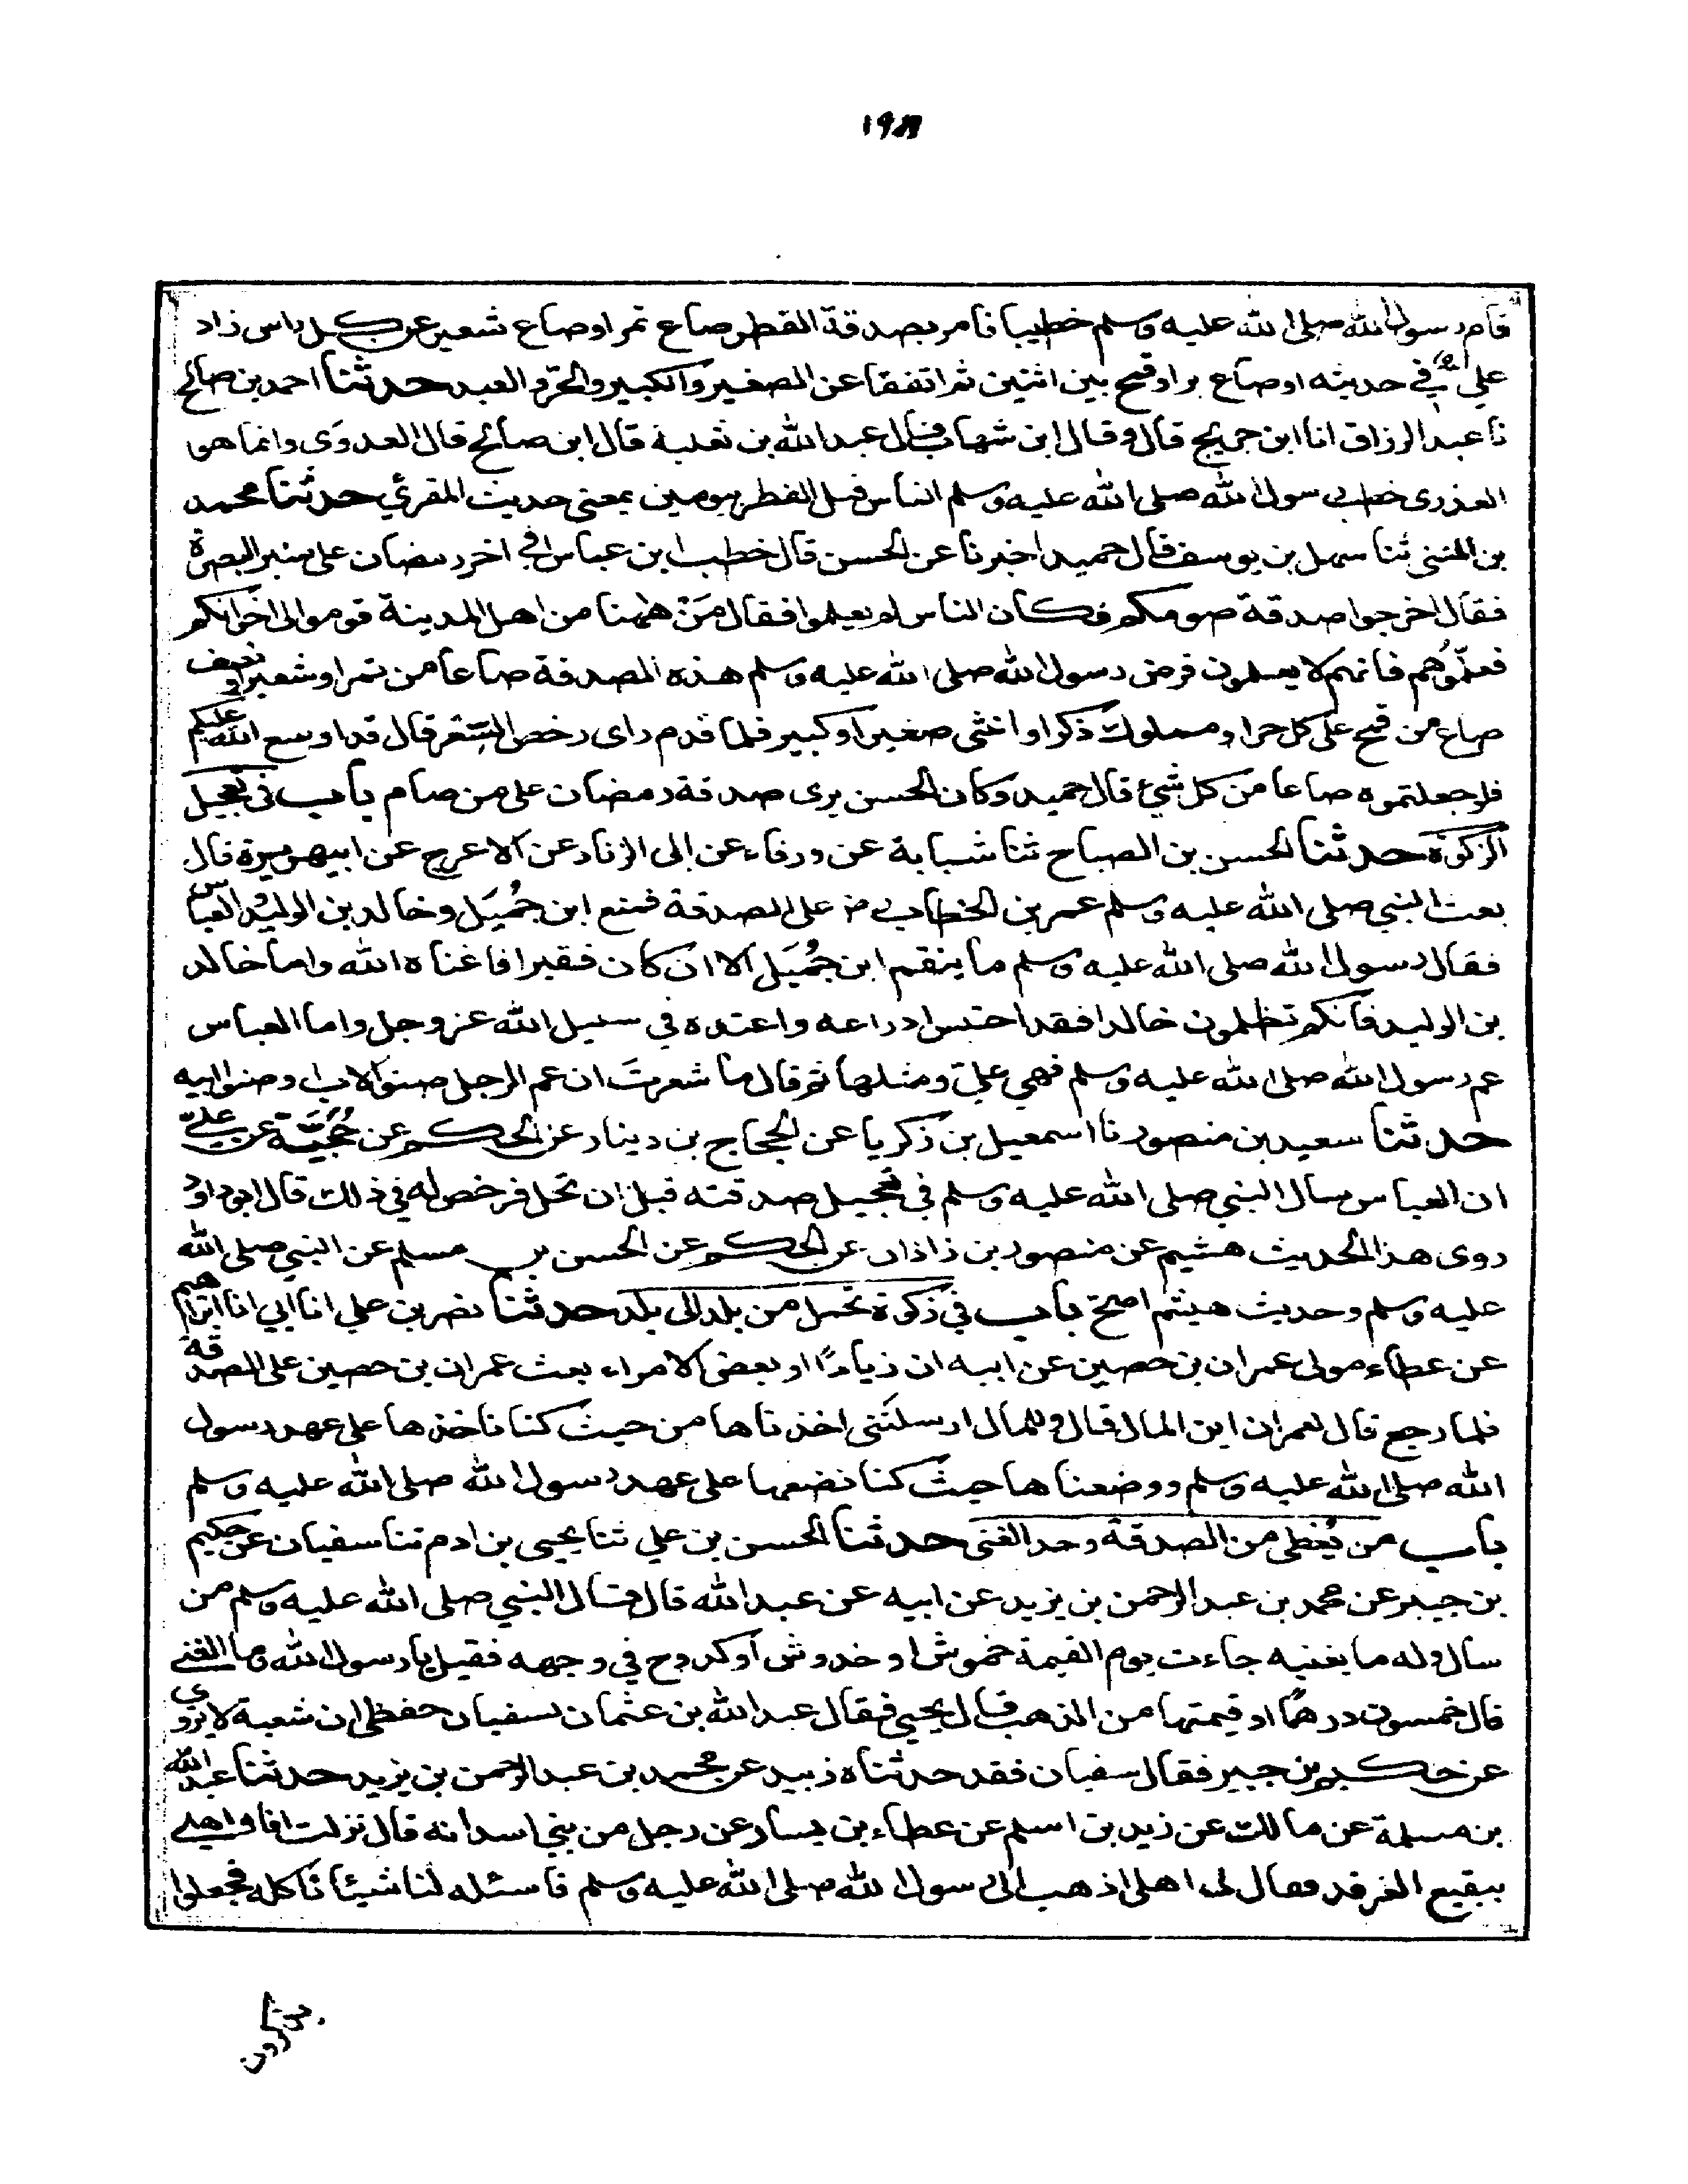 قام رسول الله صلى الله عليه وسلم خطيبا فامر بصدقة الفطر صاع تمر او صاع شعير عن كل راس زاد
علي في حديثه او صاع بر او قمح بين اثنين ثم اتفقا عن الصغير والكبير والحر والعبد حدثنا احمد بن صالح
نا عبد الرزاق انا ابن جريج قال وقال ابن شهاب قال عبد الله بن ثعلبة قال ابن صالح قال العدوى وانما هى
العذرى خطب رسول الله صلى الله عليه وسلم الناس قبل الفطر بيومين بمعنى حديث المقرئ حدثنا محمد
بن المثنى ثنا سهل بن يوسف قال حميد اخبرنا عن الحسن قال خطب ابن عباس في اخر رمضان على منبر البصرة
فقال اخرجوا صدقة صومكم فكان الناس لم يعلموا فقال من ههنا من اهل المدينة قوموا الى اخوانكم
فعلموهم فانهم لا يعلمون فرض رسول الله صلى الله عليه وسلم هذه الصدقة صاعا من تمر او شعير او نصف
صاع من قمح على كل حر او مملوك ذكر او انثى صغير او كبير فلما قدم راى رخص السعر قال قد اوسع الله عليكم
فلو جعلتموه صاعا من كل شئ قال حميد وكان الحسن يرى صدقة رمضان على من صام باب في تعجيل
الزكوة حدثنا الحسن بن الصباح ثنا شبابة عن ورقاء عن ابى الزناد عن الاعرج عن ابي هريرة قال
بعث النبي صلى الله عليه وسلم عمر بن الخطاب رض على الصدقة فمنع ابن جميل وخالد بن الوليد والعباس
فقال رسول الله صلى الله عليه وسلم ما ينقم ابن جميل الا ان كان فقيرا فاغناه الله واما خالد
بن الوليد فانكم تظلمون خالدا فقد احتبس ادراعه واعتده في سبيل الله عز وجل واما العباس
عم رسول الله صلى الله عليه وسلم فهي علي ومثلها ثم قال ما شعرت ان عم الرجل صنو الاب او صنو ابيه
حدثنا سعيد بن منصور نا اسمعيل بن زكريا عن الحجاج بن دينار عن الحكم عن حجية عن علي
ان العباس سال النبي صلى الله عليه وسلم في تعجيل صدقته قبل ان تحل فرخص له في ذلك قال ابو داود
روى هذا الحديث هشيم عن منصور بن زاذان عن الحكم عن الحسن بن مسلم عن النبي صلى الله
عليه وسلم وحديث هشيم اصح باب في زكوة تحمل من بلد الى بلد حدثنا نصر بن علي انا ابي انا ابراهيم
عن عطاء مولى عمران بن حصين عن ابيه ان زيادا او بعض الامراء بعث عمران بن حصين على الصدقة
فلما رجع قال لعمران اين المال قال وللمال ارسلتنى اخذناها من حيث كنا ناخذها على عهد رسول
الله صلى الله عليه وسلم ووضعناها حيث كنا نضعها على عهد رسول الله صلى الله عليه وسلم
باب من يعطى من الصدقة وحد الغنى حدثنا الحسن بن علي ثنا يحيى بن ادم ثنا سفيان عن حكيم
بن جبير عن محمد بن عبد الرحمن بن يزيد عن ابيه عن عبد الله قال قال النبي صلى الله عليه وسلم من
سال وله ما يغنيه جاءت يوم القيمة خموش او خدوش او كدوح في وجهه فقيل يا رسول الله وما الغنى
قال خمسون درهما او قيمتها من الذهب قال يحيى فقال عبد الله بن عثمان لسفيان حفظى ان شعبة لا يروى
عن حكيم بن جبير فقال سفيان فقد حدثناه زبيد عن محمد بن عبد الرحمن بن يزيد حدثنا عبد الله
بن مسلمة عن مالك عن زيد بن اسلم عن عطاء بن يسار عن رجل من بني اسد انه قال نزلت انا واهلى
ببقيع الغرقد فقال لى اهلى اذهب الى رسول الله صلى الله عليه وسلم فاسئله لنا شيئا ناكله فجعلوا
يذكرون